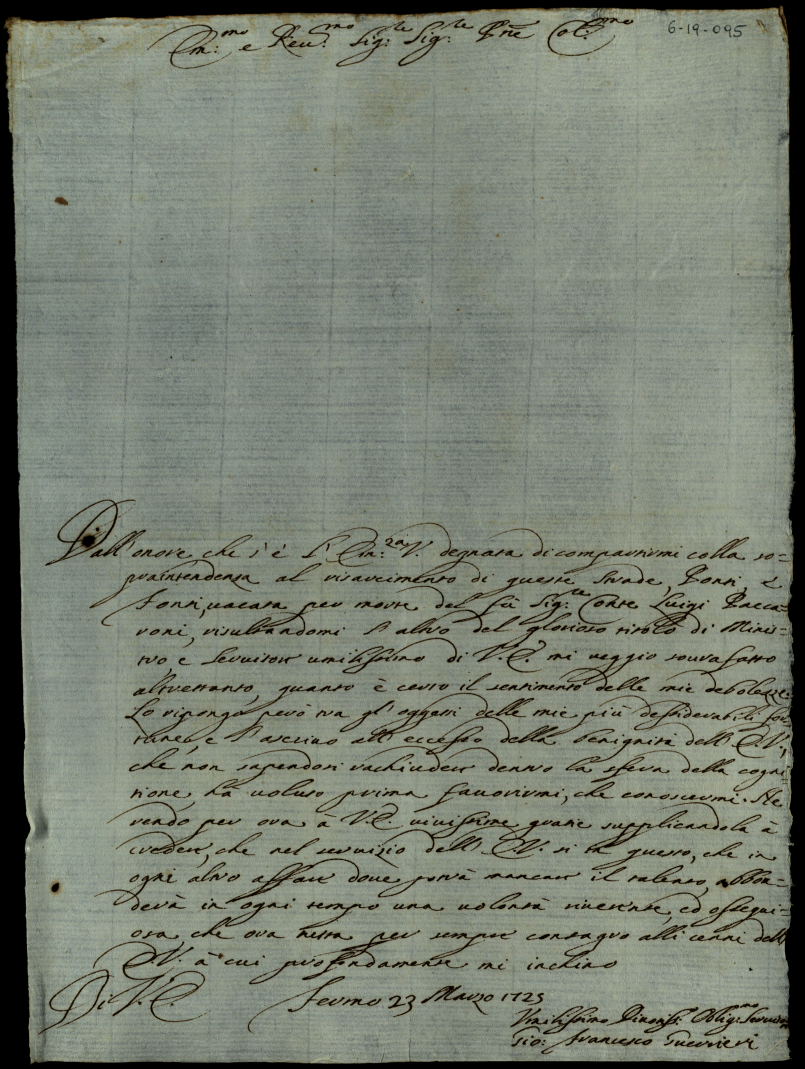 6-19-095
Em:mo e Reu:mo Sig:re Sig:re Pñe Col:mo
Dall'onore che s'è l'Em:za V. degnata di compartirmi colla so=
praintendenza al risarcimento di queste Strade, Ponti, e
Fonti, uacata per morte del fù Sig:re Conte Luigi Pacca=
roni, risultandomi l'altro del glorioso titolo di Minis=
tro, e Seruitore umilissimo di V.E. mi ueggio sourafatto
altrettanto, quanto è certo il sentimento delle mie debolezze.
Lo ripongo però tra gl'oggetti delle mie più desiderabili for=
tune, e l'ascriuo all'eccesso della benignità dell'E.V.,
che non sapendosi rachiudere dentro la sfera della cogni=
tione, hà uoluto prima fauorirmi, che conoscermi. Ne
rendo per ora à V.E. uiuissime grazie supplicandola à
credere, che nel seruizio dell'E.V. si in questo, che in
ogni altro affare doue potrà mancare il talento, abbon=
derà in ogni tempo una uolontà riuerente, ed ossequi=
osa che ora resta per sempre consagro alli cenni dell'
E.V. à cui profondamente mi inchino
Di V.E. Fermo 23 Marzo 1725
Vmilissimo Diuotis: Oblig:mo Seruitore
Gio: Francesco Guerrieri